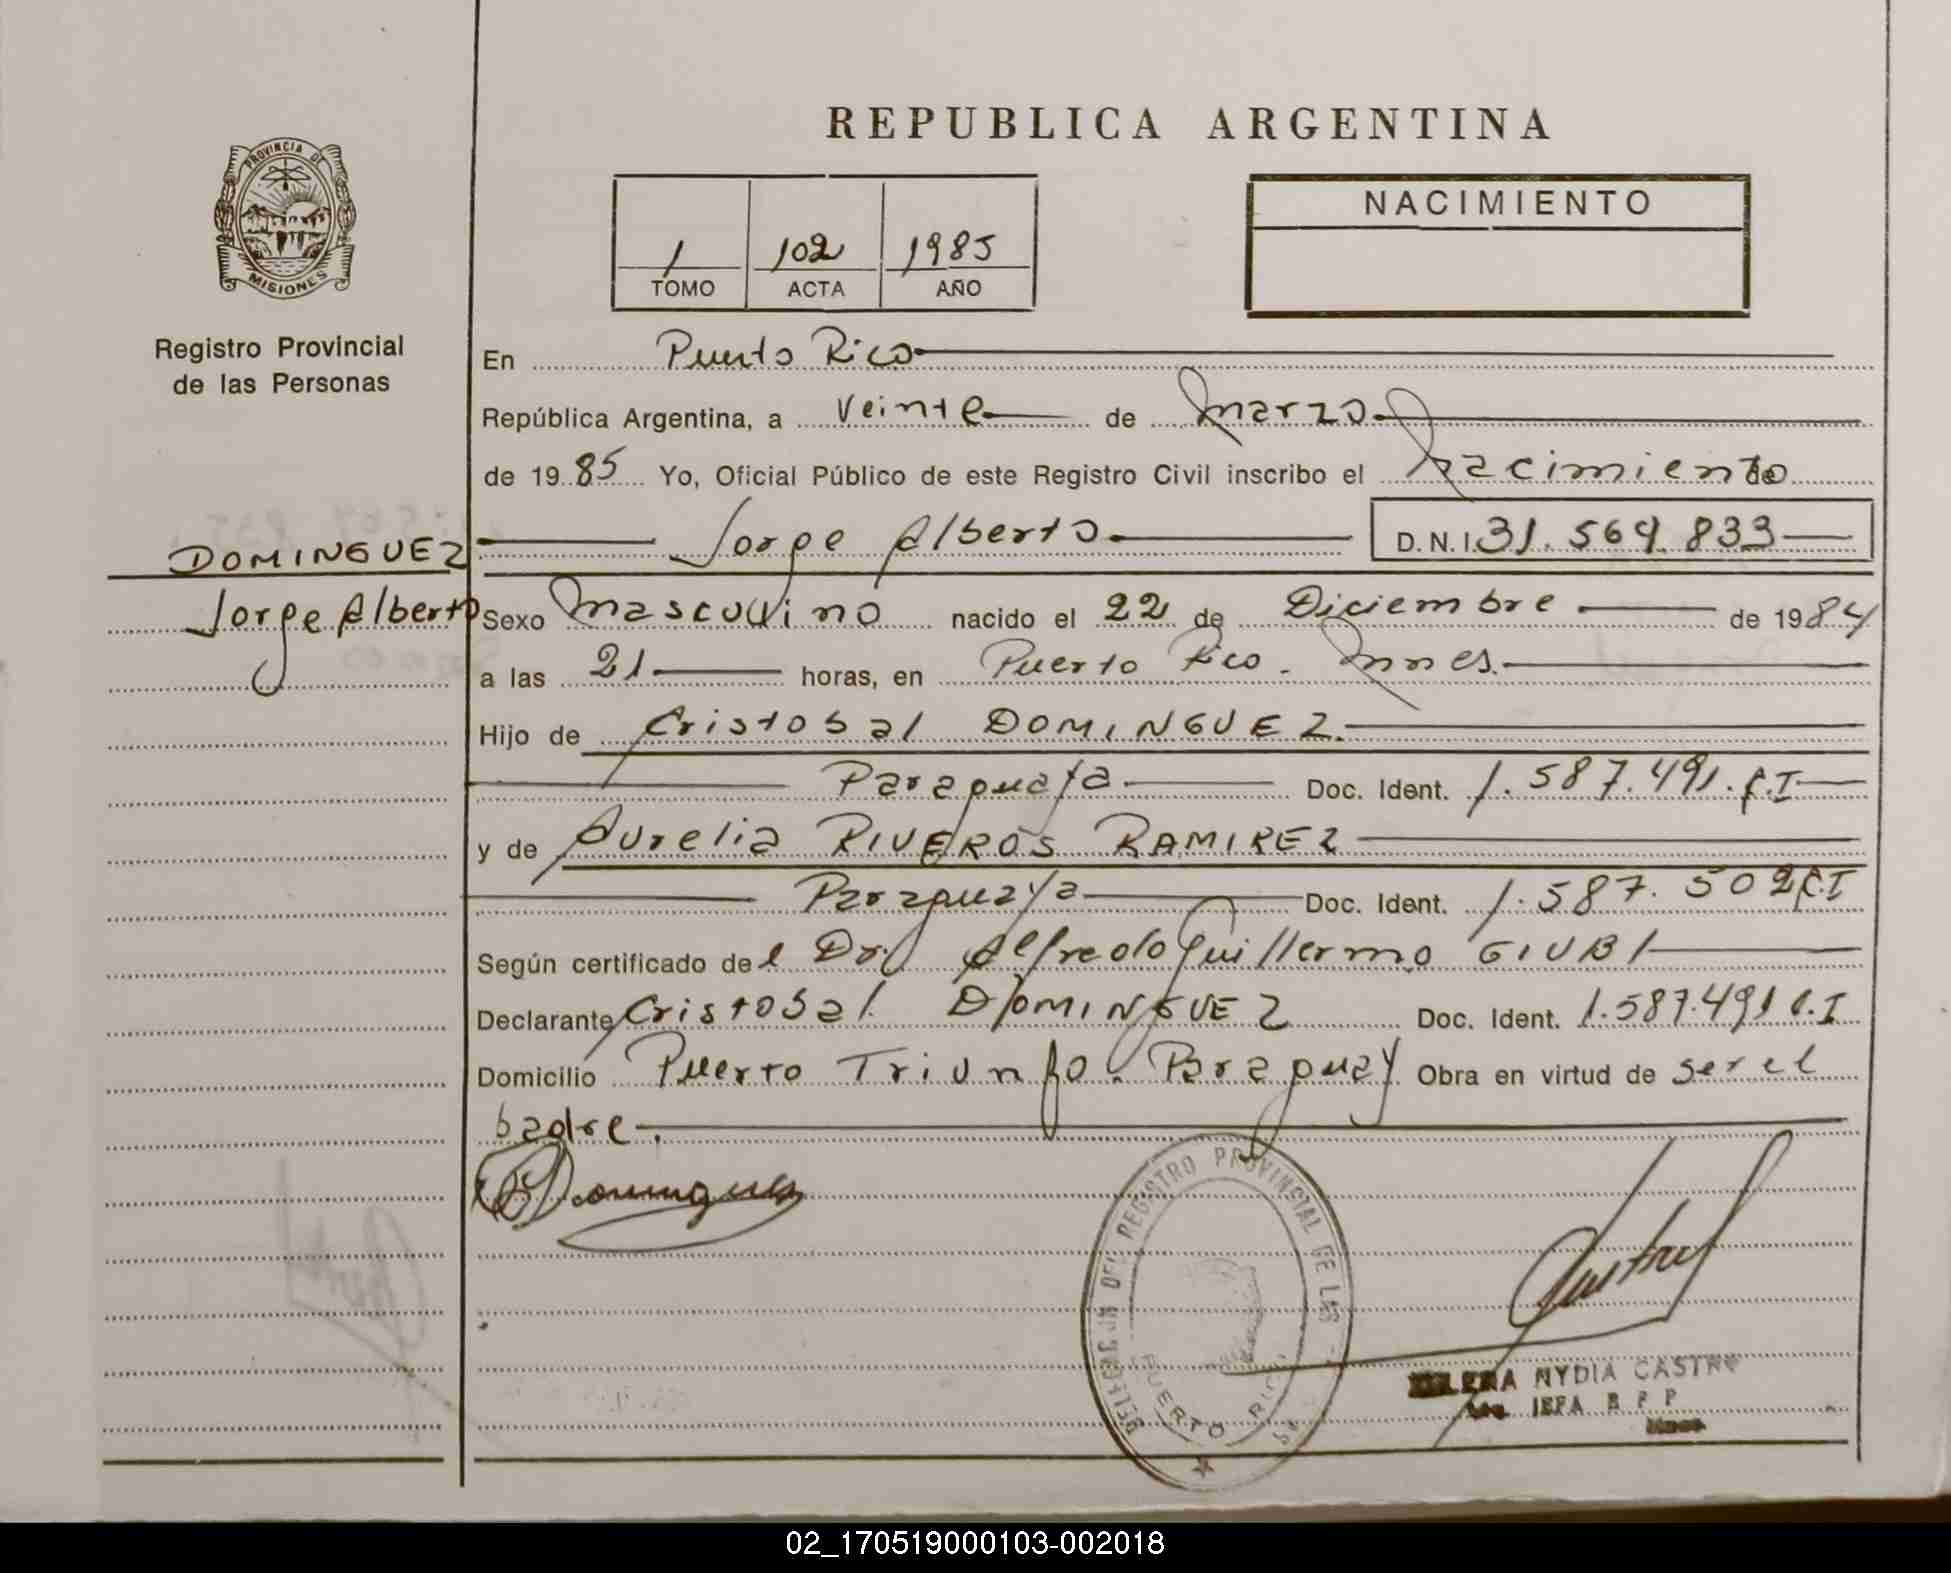 REPUBLICA ARGENTINA
PROVINCIA DE
MISIONES
Registro Provincial
de las Personas
NACIMIENTO
1 102 1985
TOMO ACTA AÑO
En Puerto Rico
República Argentina, a Veinte de Marzo
de 1985 Yo, Oficial Público de este Registro Civil inscribo el nacimiento de
DOMINGUEZ Jorge Alberto D.N.I. 31.569.833
Jorge Alberto
Sexo Masculino nacido el 22 de Diciembre de 1984
a las 21 horas, en Puerto Rico. Mnes.
Hijo de Cristobal DOMINGUEZ.
Paraguaya Doc. Ident. 1.587.491.C.I
y de Aurelia RIVEROS RAMIREZ
Paraguaya Doc. Ident. 1.587.502 C.I
Según certificado del Dr. Alfredo Guillermo GIUBI
Declarante Cristobal DOMINGUEZ Doc. Ident. 1.587.491 C.I
Domicilio Puerto Triunfo. Paraguay Obra en virtud de ser el
padre.
Dominguez
DELEGACION DEL REGISTRO PROVINCIAL DE LAS
PUERTO RICO
NYDIA CASTRO
R P P
02_170519000103-002018